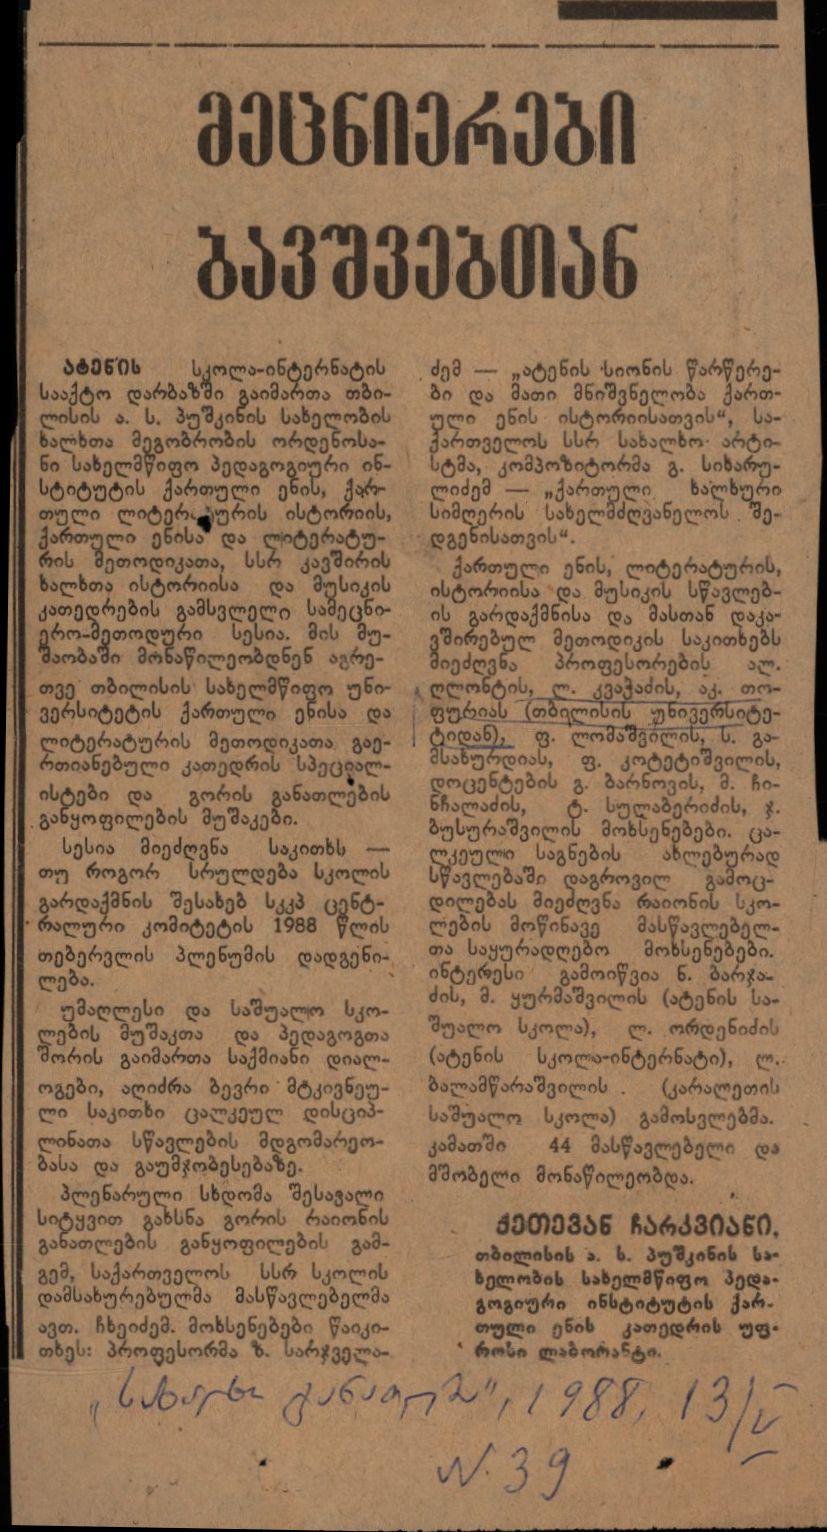 მეცნიერები
ბავშვებთან
ატენის სკოლა-ინტერნატის
სააქტო დარბაზში გაიმართა თბი-
ლისის ა. ს. პუშკინის სახელობის
ხალხთა მეგობრობის ორდენოსა-
ნი სახელმწიფო პედაგოგიური ინ-
სტიტუტის ქართული ენის, ქარ-
თული ლიტერატურის ისტორიის,
ქართული ენისა და ლიტერატუ-
რის მეთოდიკათა, სსრ კავშირის
ხალხთა ისტორიისა და მუსიკის
კათედრების გამსვლელი სამეცნი-
ერო-მეთოდური სესია. მის მუ-
შაობაში მონაწილეობდნენ აგრე-
თვე თბილისის სახელმწიფო უნი-
ვერსიტეტის ქართული ენისა და
ლიტერატურის მეთოდიკათა გაე-
რთიანებული კათედრის სპეციალ-
ისტები და გორის განათლების
განყოფილების მუშაკები.
სესია მიეძღვნა საკითხს —
თუ როგორ სრულდება სკოლის
გარდაქმნის შესახებ სკკპ ცენტ-
რალური კომიტეტის 1988 წლის
თებერვლის პლენუმის დადგენი-
ლება.
უმაღლესი და საშუალო სკო-
ლების მუშაკთა და პედაგოგთა
შორის გაიმართა საქმიანი დიალ-
ოგები, აღიძრა ბევრი მტკივნეუ-
ლი საკითხი ცალკეულ დისციპ-
ლინათა სწავლების მდგომარეო-
ბასა და გაუმჯობესებაზე.
პლენარული სხდომა შესავალი
სიტყვით გახსნა გორის რაიონის
განათლების განყოფილების გამ-
გემ, საქართველოს სსრ სკოლის
დამსახურებულმა მასწავლებელმა
ავთ. ჩხეიძემ. მოხსენებები წაიკი-
თხეს: პროფესორმა ზ. სარჯველა-
ძემ — „ატენის სიონის წარწერე-
ბი და მათი მნიშვნელობა ქართ-
ული ენის ისტორიისათვის“, სა-
ქართველოს სსრ სახალხო არტი-
სტმა, კომპოზიტორმა გ. სიხარუ-
ლიძემ — „ქართული ხალხური
სიმღერის სახელმძღვანელოს შე-
დგენისათვის“.
ქართული ენის, ლიტერატურის,
ისტორიისა და მუსიკის სწავლებ-
ის გარდაქმნისა და მასთან დაკა-
ვშირებულ მეთოდიკის საკითხებს
მიეძღვნა პროფესორების ალ.
ღლონტის, ლ. კვაჭაძის, აკ. თო-
ფურიას (თბილისის უნივერსიტე-
ტიდან), ფ. ლომაშვილის, ს. გა-
მსახურდიას, ფ. კოტეტიშვილის,
დოცენტების გ. ბარნოვის, მ. ჩი-
ნჩალაძის, ტ. სულაბერიძის, ჯ.
ბუსურაშვილის მოხსენებები. ცა-
ლკეული საგნების ახლებურად
სწავლებაში დაგროვილ გამოც-
დილებას მიეძღვნა რაიონის სკო-
ლების მოწინავე მასწავლებელ-
თა საყურადღებო მოხსენებები.
ინტერესი გამოიწვია ნ. ბარჯა-
ძის, მ. ყურმაშვილის (ატენის სა-
შუალო სკოლა), ლ. ორდენიძის
(ატენის სკოლა-ინტერნატი), ლ.
ბალამწარაშვილის (კარალეთის
საშუალო სკოლა) გამოსვლებმა.
კამათში 44 მასწავლებელი და
მშობელი მონაწილეობდა.
ქეთევან ჩარკვიანი,
თბილისის ა. ს. პუშკინის სა-
ხელობის სახელმწიფო პედა-
გოგიური ინსტიტუტის ქარ-
თული ენის კათედრის უფ-
როსი ლაბორანტი.
„სახალხო განათლება“, 1988, 13/V
N. 39